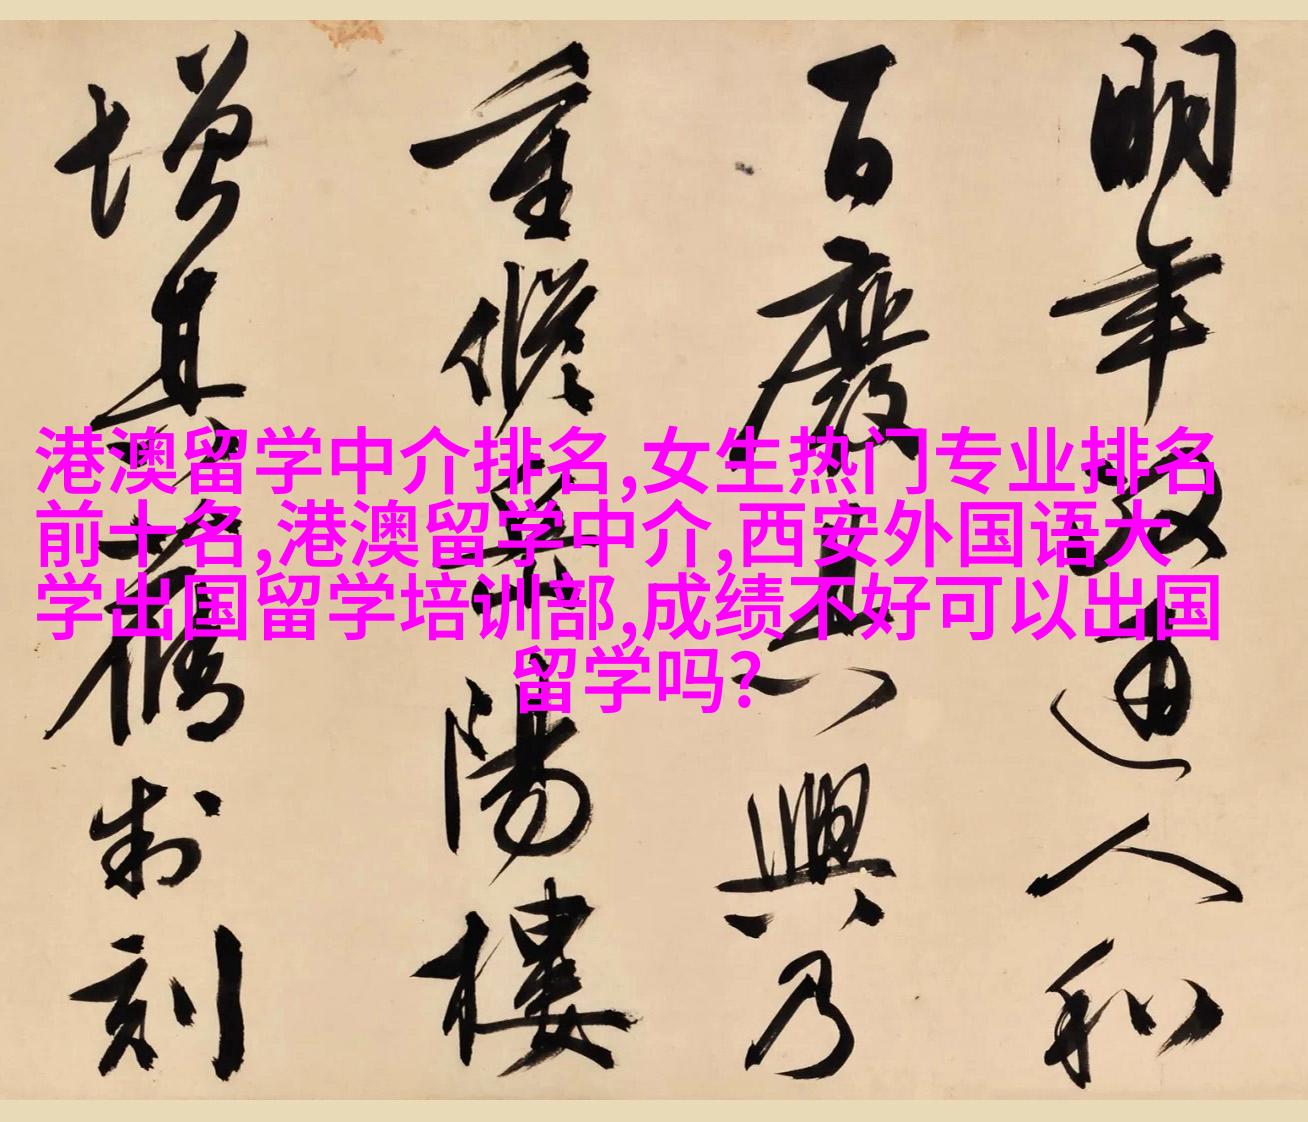 明年政通人和
百廢具興乃
重脩岳陽樓
增其舊制刻
港澳留学中介排名,女生热门专业排名
前十名,港澳留学中介,西安外国语大
学出国留学培训部,成绩不好可以出国
留学吗?